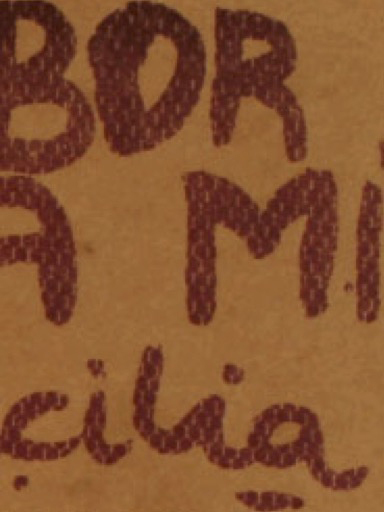 BOR
A MI
cilia